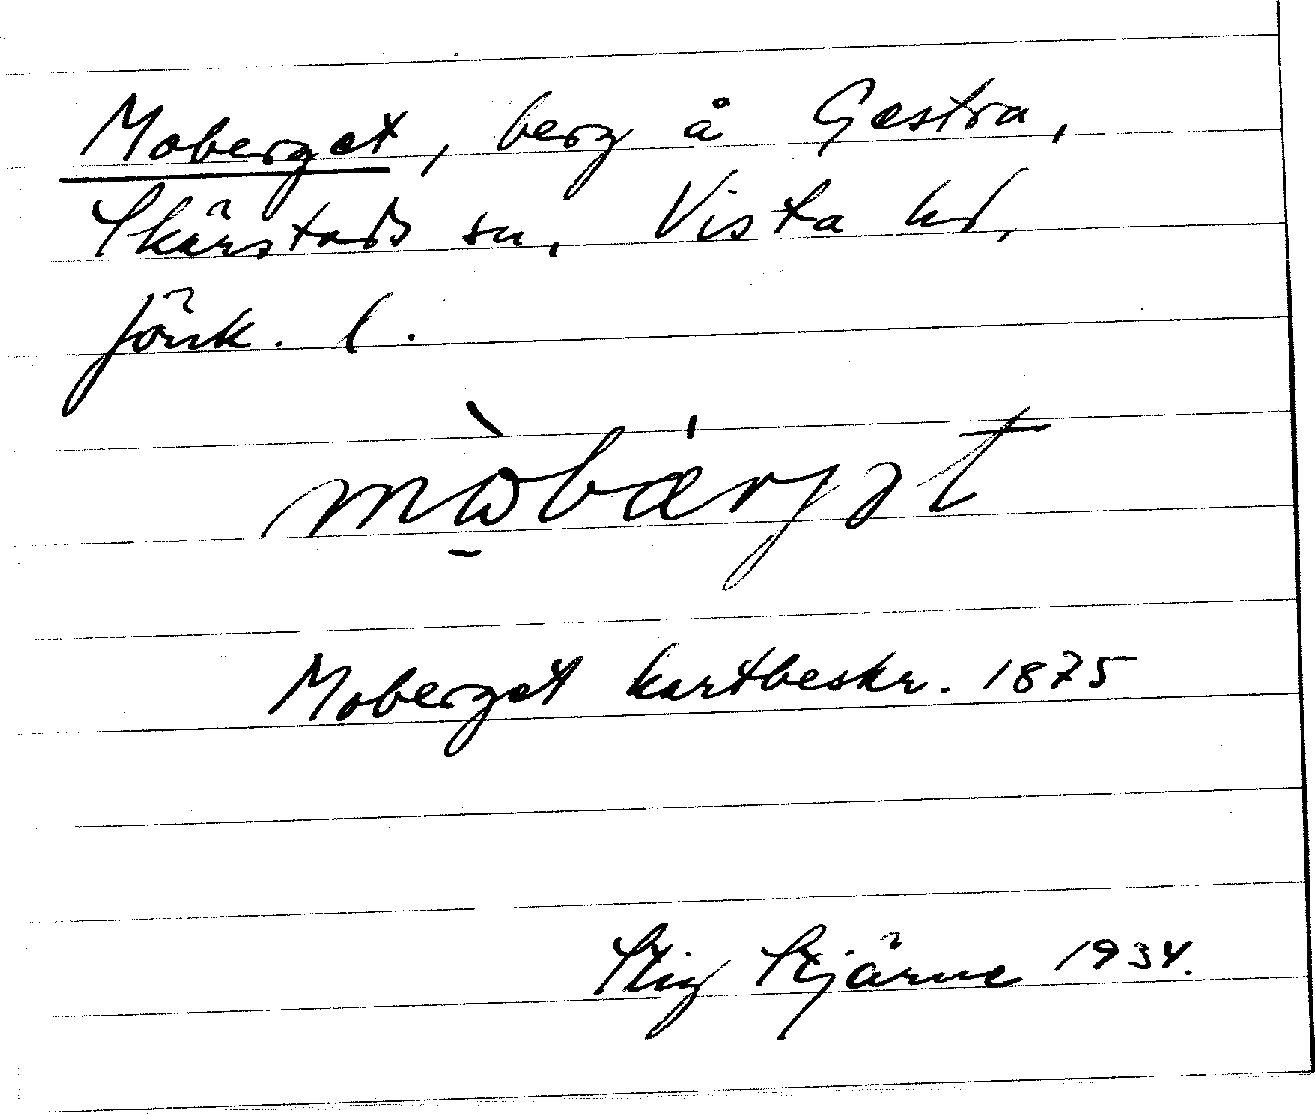 Moberget, berg å Gestra,
Skärstads sn, Vista hd,
Jönk. l.
mɷ̀bærjət
Moberget kartbeskr. 1875
Stig Stjärne 1934.